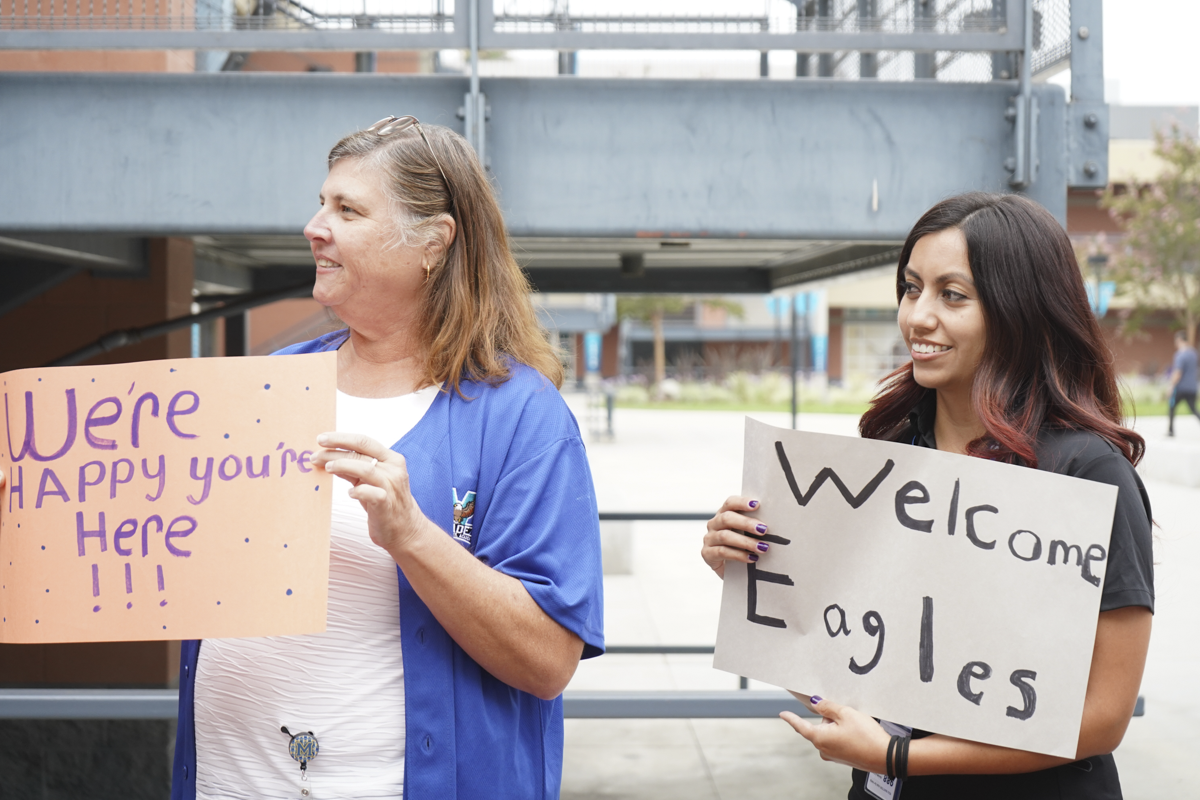 We're
HAPPY you're
Here
!!!
Welcome
Eagles